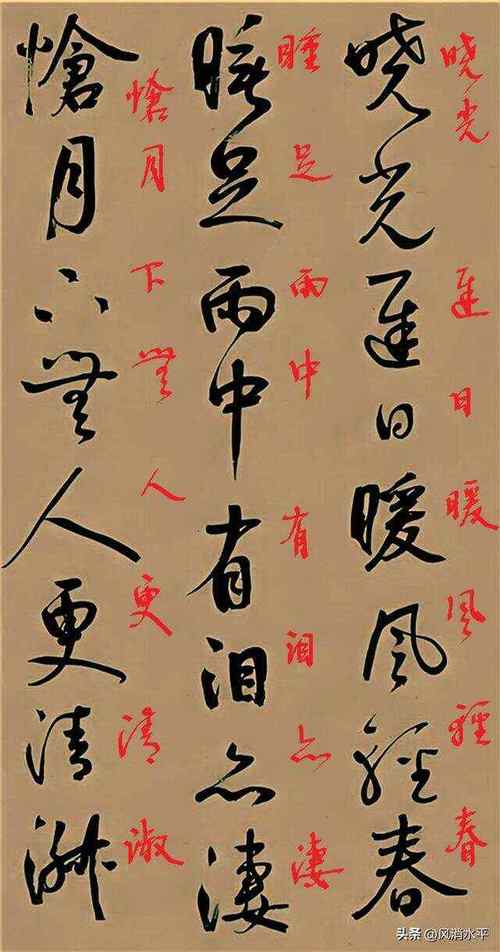 晓光遲日暖風輕春
晓光遲日暖風輕春
睡足雨中有泪亦淒
睡足雨中有泪亦淒
愴月下無人更清淑
愴月下無人更清淑
头条 @风消水平